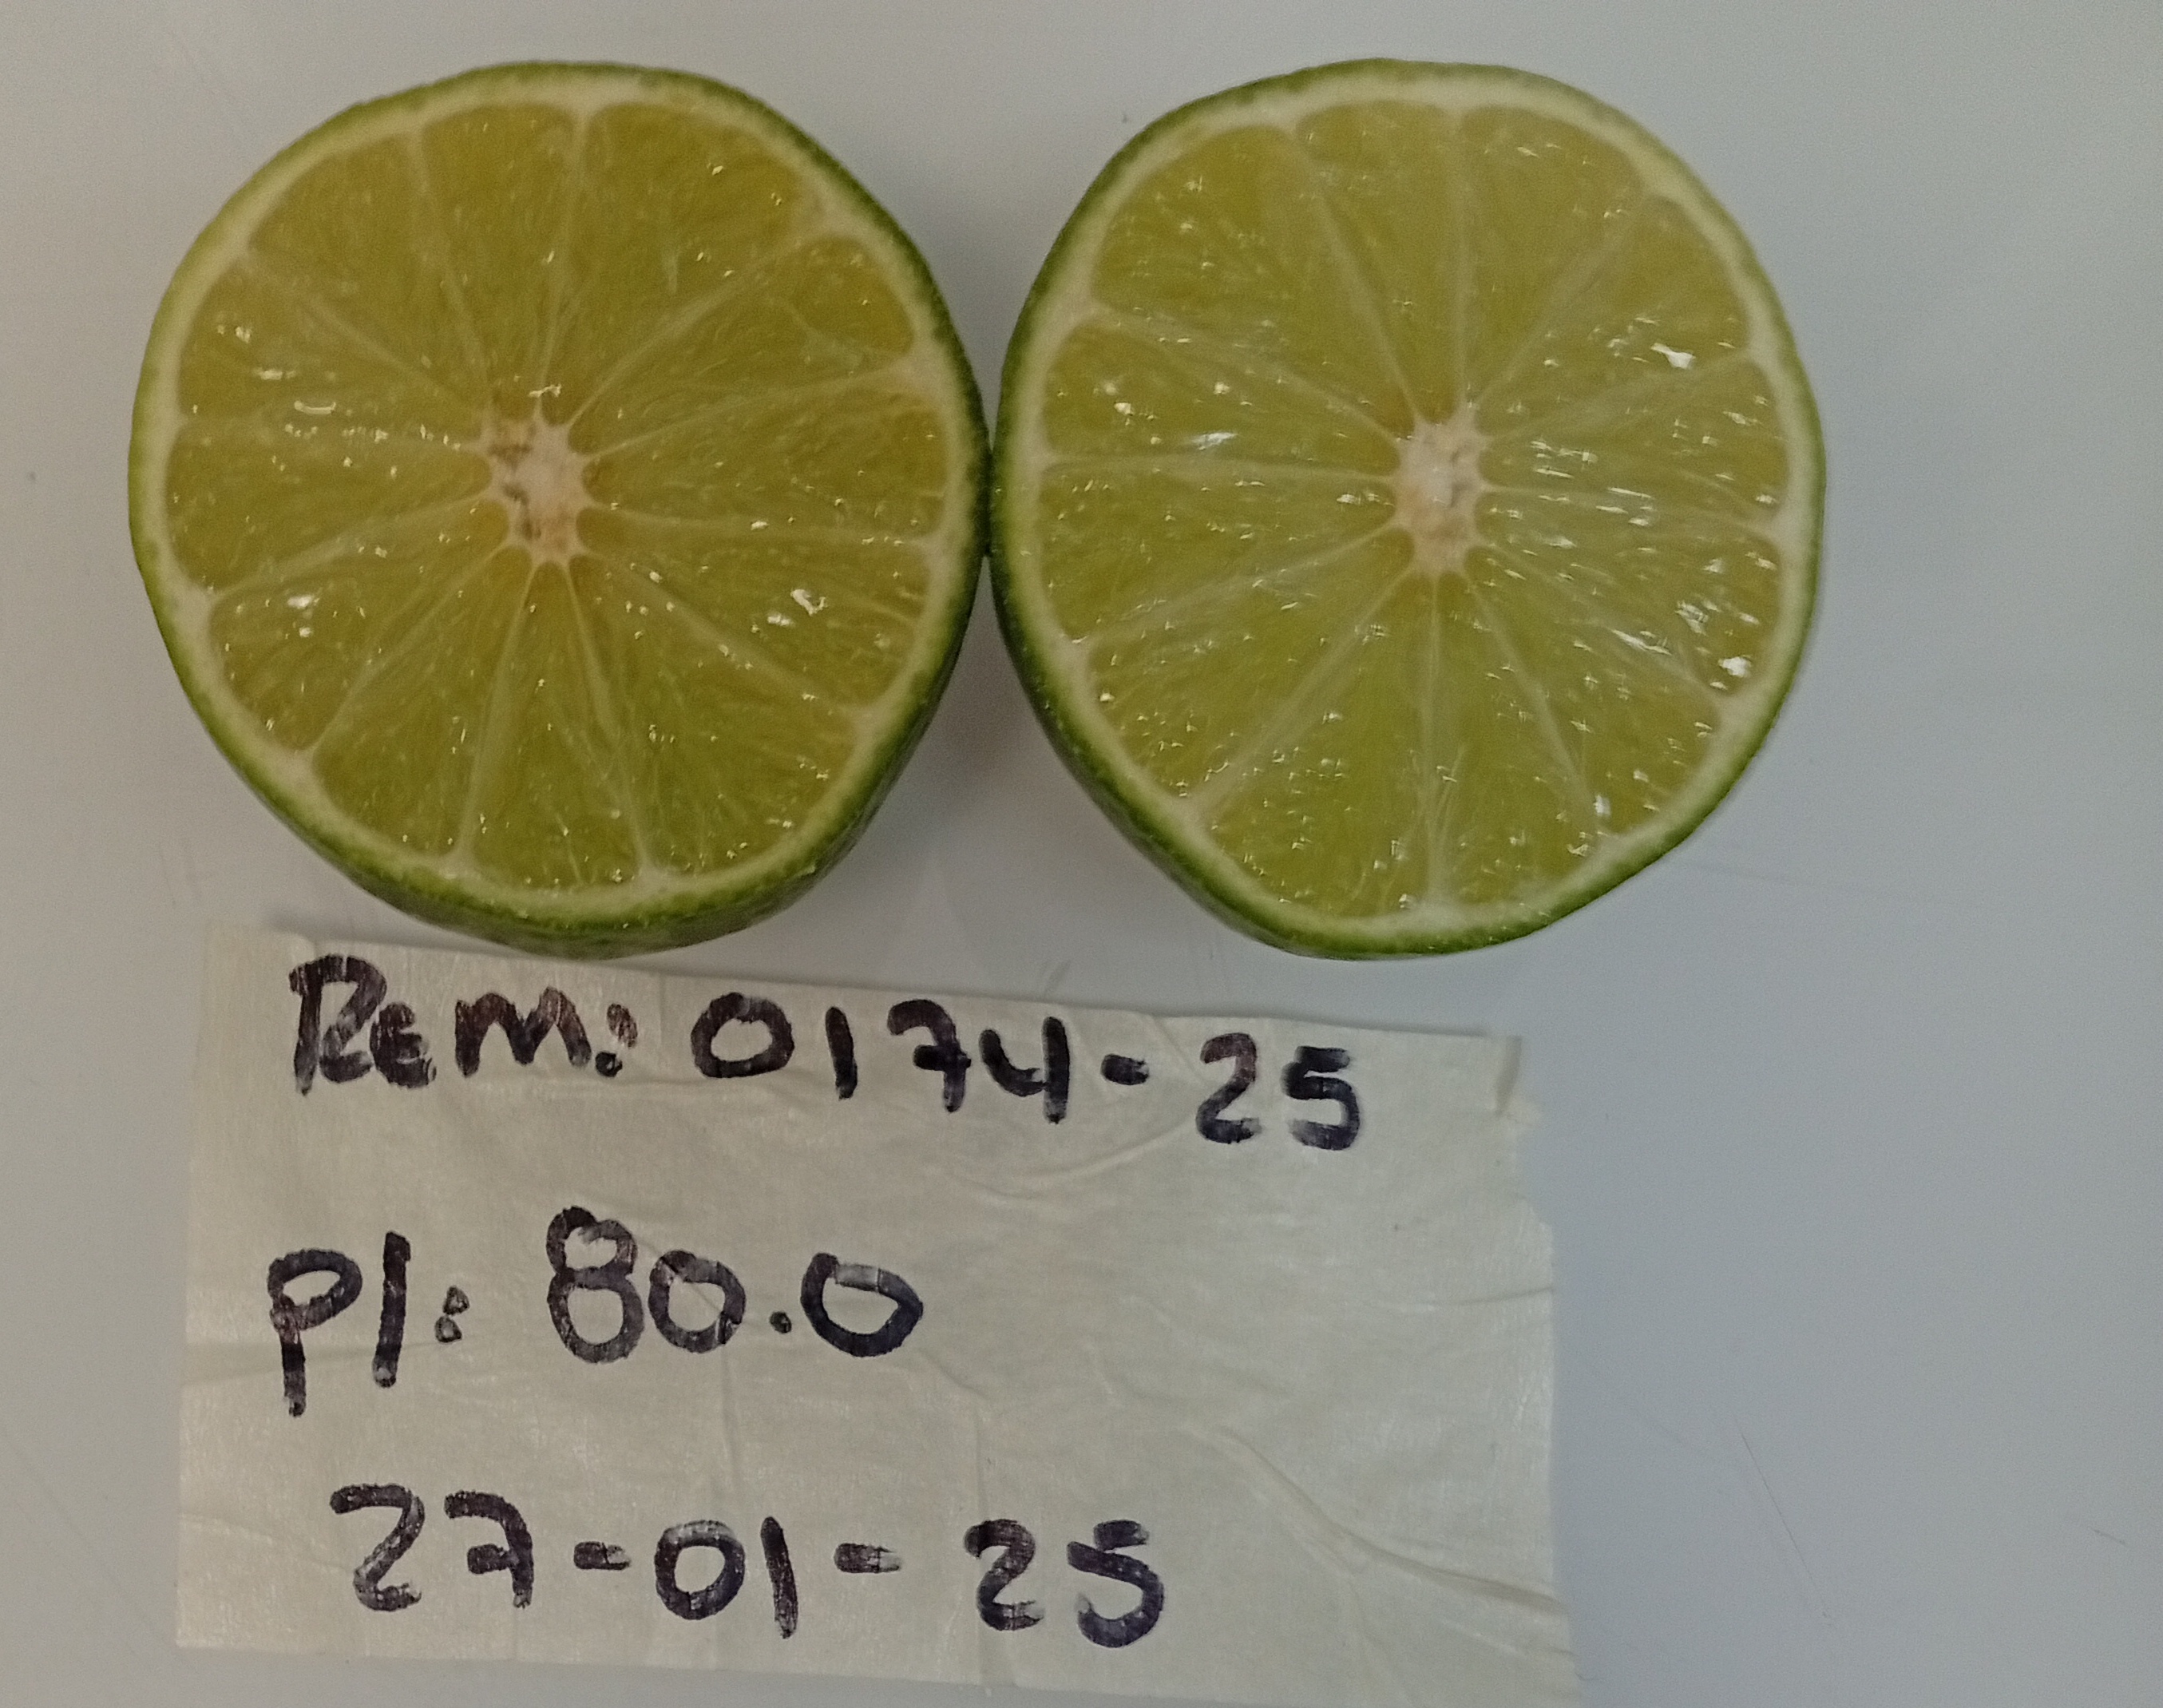 Rem: 0174-25
Pl: 80.0
27-01-25